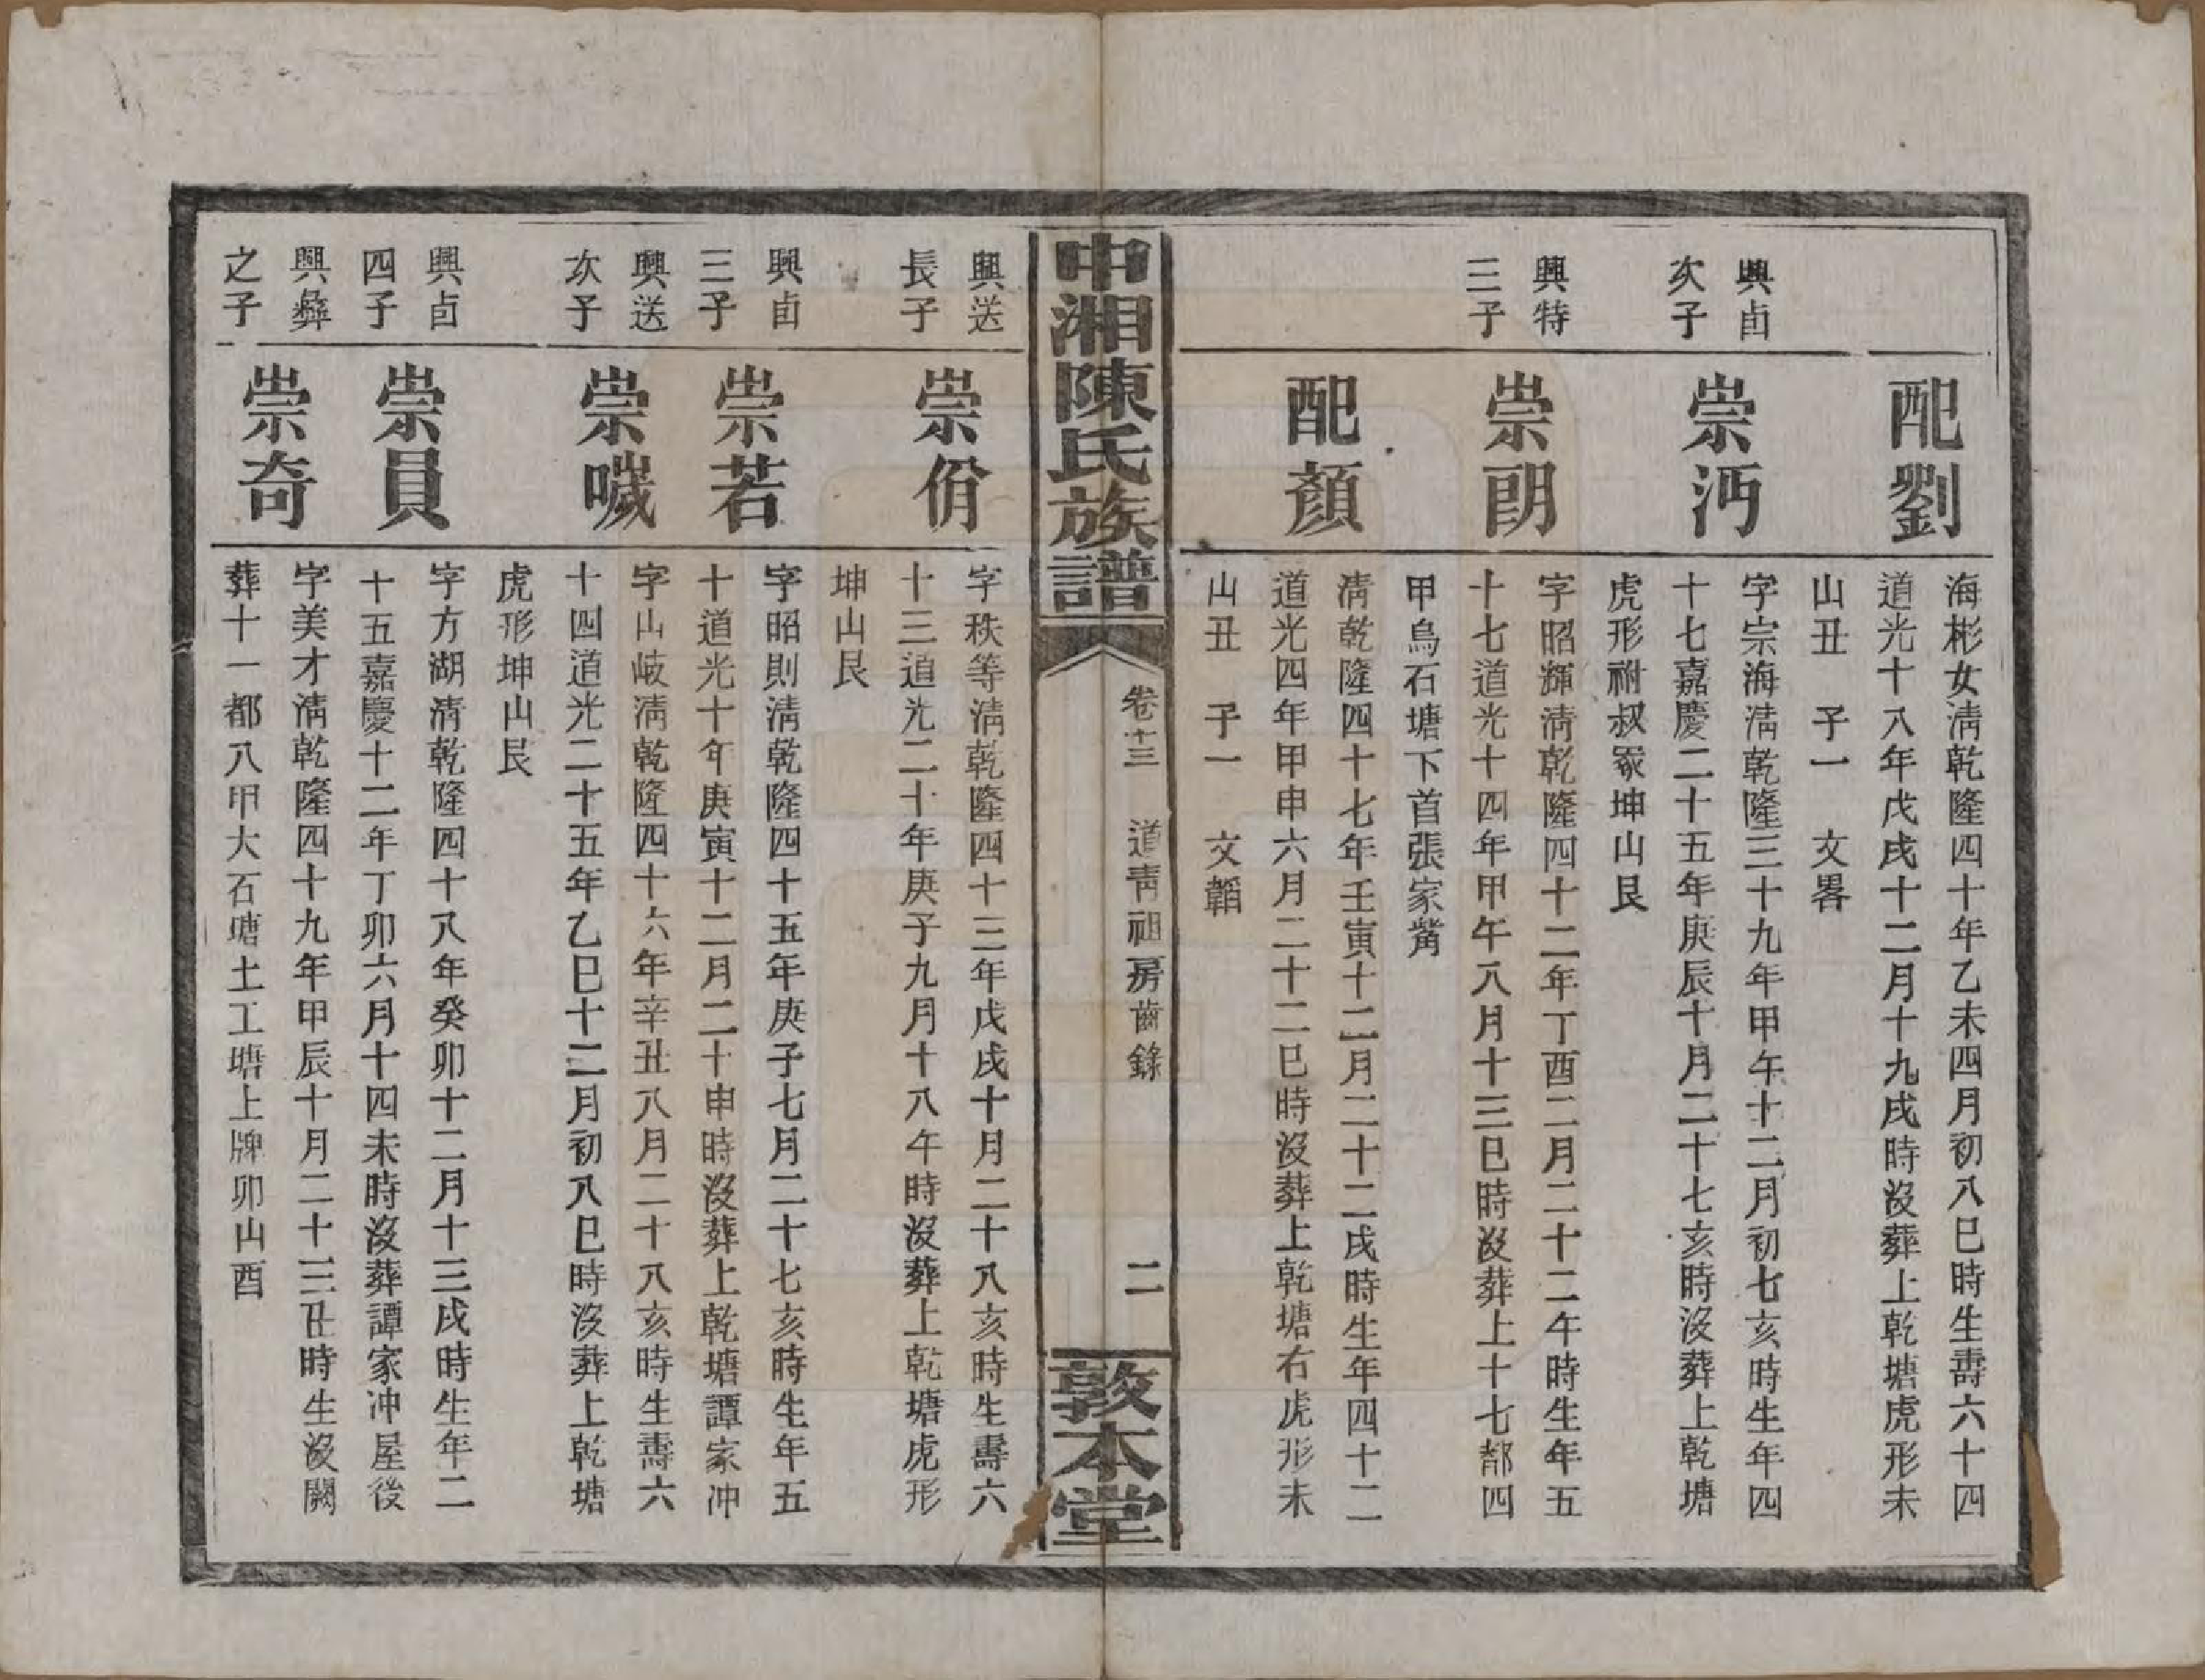 配劉
海彬女淸乾隆四十年乙未四月初八巳時生壽六十四
道光十八年戊戌十二月十九戌時沒葬上乾塘虎形未
山丑　子一　文畧
興卣
次子
崇沔
字宗海淸乾隆三十九年甲午十二月初七亥時生年四
十七嘉慶二十五年庚辰十月二十七亥時沒葬上乾塘
虎形祔叔冢坤山艮
興特
三子
崇朗
字昭輝淸乾隆四十二年丁酉二月二十二午時生年五
十七道光十四年甲午八月十三巳時沒葬上十七都四
甲烏石塘下首張家觜
配顏
淸乾隆四十七年壬寅十二月二十二戌時生年四十二
道光四年甲申六月二十二巳時沒葬上乾塘右虎形未
山丑　子一　文韜
中湘陳氏族譜
卷十三　道靑祖房齒錄　二
敦本堂
興送
長子
崇佾
字秩等淸乾隆四十三年戊戌十月二十八亥時生壽六
十三道光二十年庚子九月十八午時沒葬上乾塘虎形
坤山艮
興卣
三子
崇若
字昭則淸乾隆四十五年庚子七月二十七亥時生年五
十道光十年庚寅十二月二十申時沒葬上乾塘譚家冲
興送
次子
崇噦
字山岐淸乾隆四十六年辛丑八月二十八亥時生壽六
十四道光二十五年乙巳十二月初八巳時沒葬上乾塘
虎形坤山艮
興卣
四子
崇員
字方湖淸乾隆四十八年癸卯十二月十三戌時生年二
十五嘉慶十二年丁卯六月十四未時沒葬譚家冲屋後
興彝
之子
崇奇
字美才淸乾隆四十九年甲辰十月二十三丑時生沒闕
葬十一都八甲大石塘土工塘上牌卯山酉